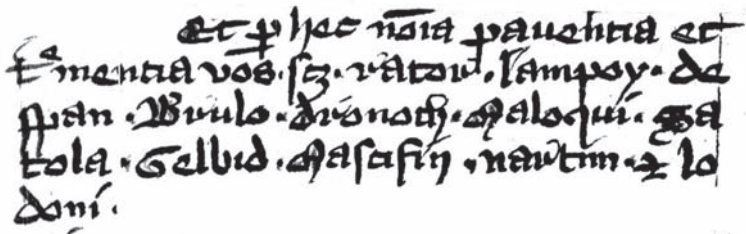 Et ꝑ hec nōia pauentia et
tͤmentia vos. scꝫ. rator. lampoy. de
span. Brulo. dronoth. Maloqui. Ga
tola. Gelbid. Mascifin. nartim. ⁊ lo
doni.